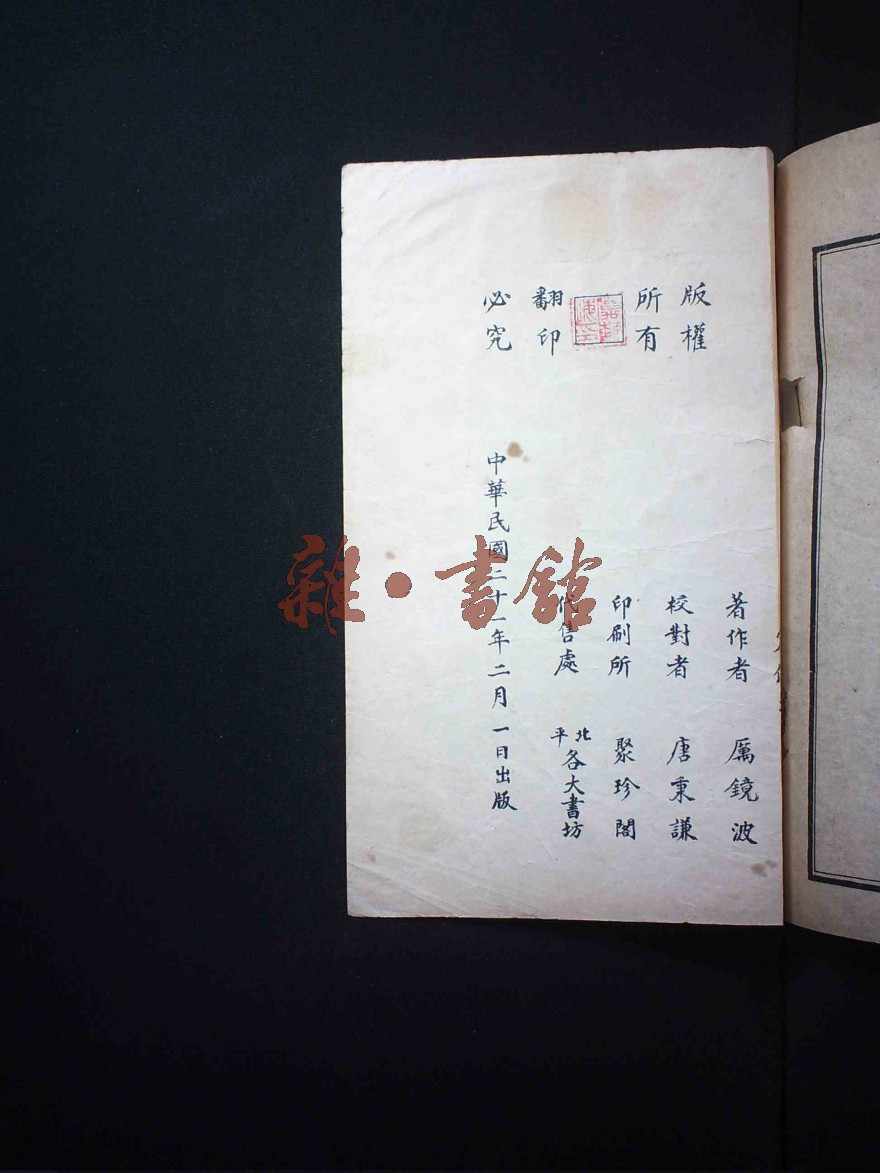 版權
所有
翻印
必究
著作者 厲鏡波
校對者 唐秉謙
印刷所 聚珍閣
代售處 北平各大書坊
中華民國二十一年二月一日出版
雜·書館